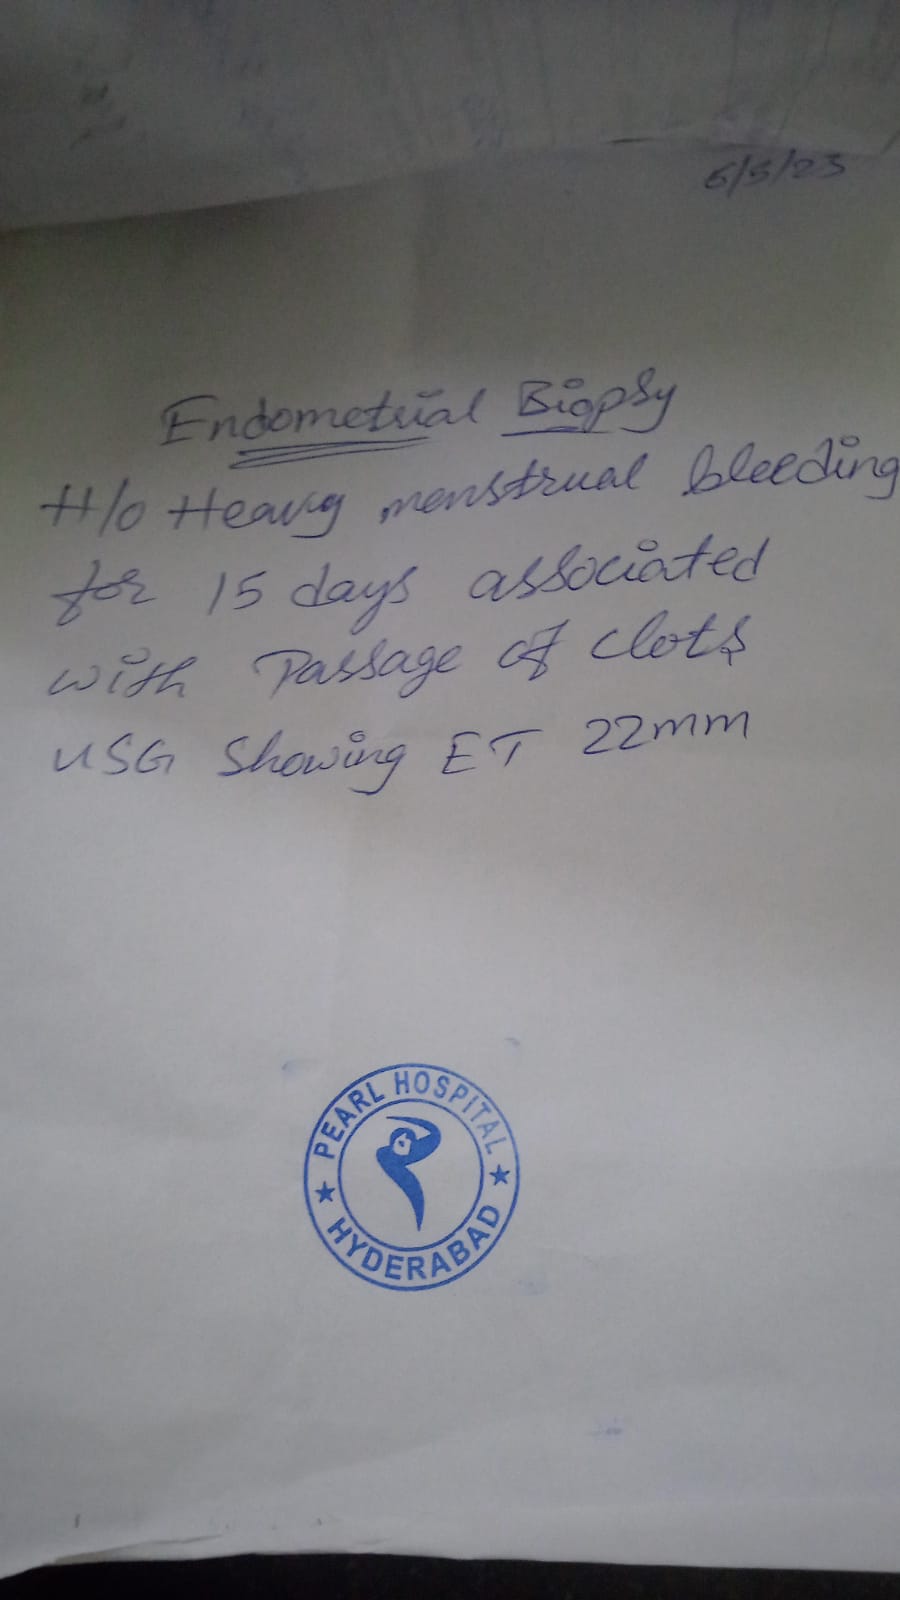 6/5/23
Endometrial Biopsy
H/o Heavy menstrual bleeding
for 15 days associated
with Passage of clots
USG Showing ET 22mm
PEARL HOSPITAL
HYDERABAD